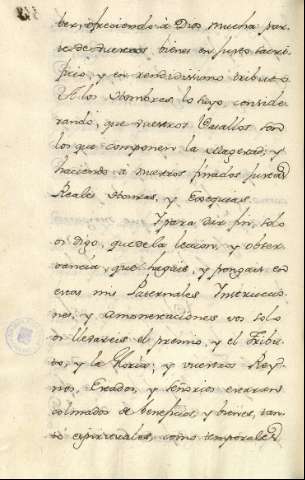 ber, ofreciendo à Dios mucha par
te de vuestros bienes en justo sacri
ficio, y en rendidissimo tributo
A los Hombres lo hago, conside
rando, que vuestros Vasallos son
los que componen la Magestad, y
haciendo a nuestros finados
Reales Honras, y Exequias.
Y para dàr fin, solo
os digo, que de la leccion, y obser-
vancia, que hagais, y pongais en
estas mis Paternales Instruccio
nes, y amonestaciones vos solo
os llevareis el premio, y el Tribu
to, y la Gloria; y vuestros Rey
nos, Estados, y Señorios
colmados de beneficios, y bienes, tan
to espirituales, como temporales